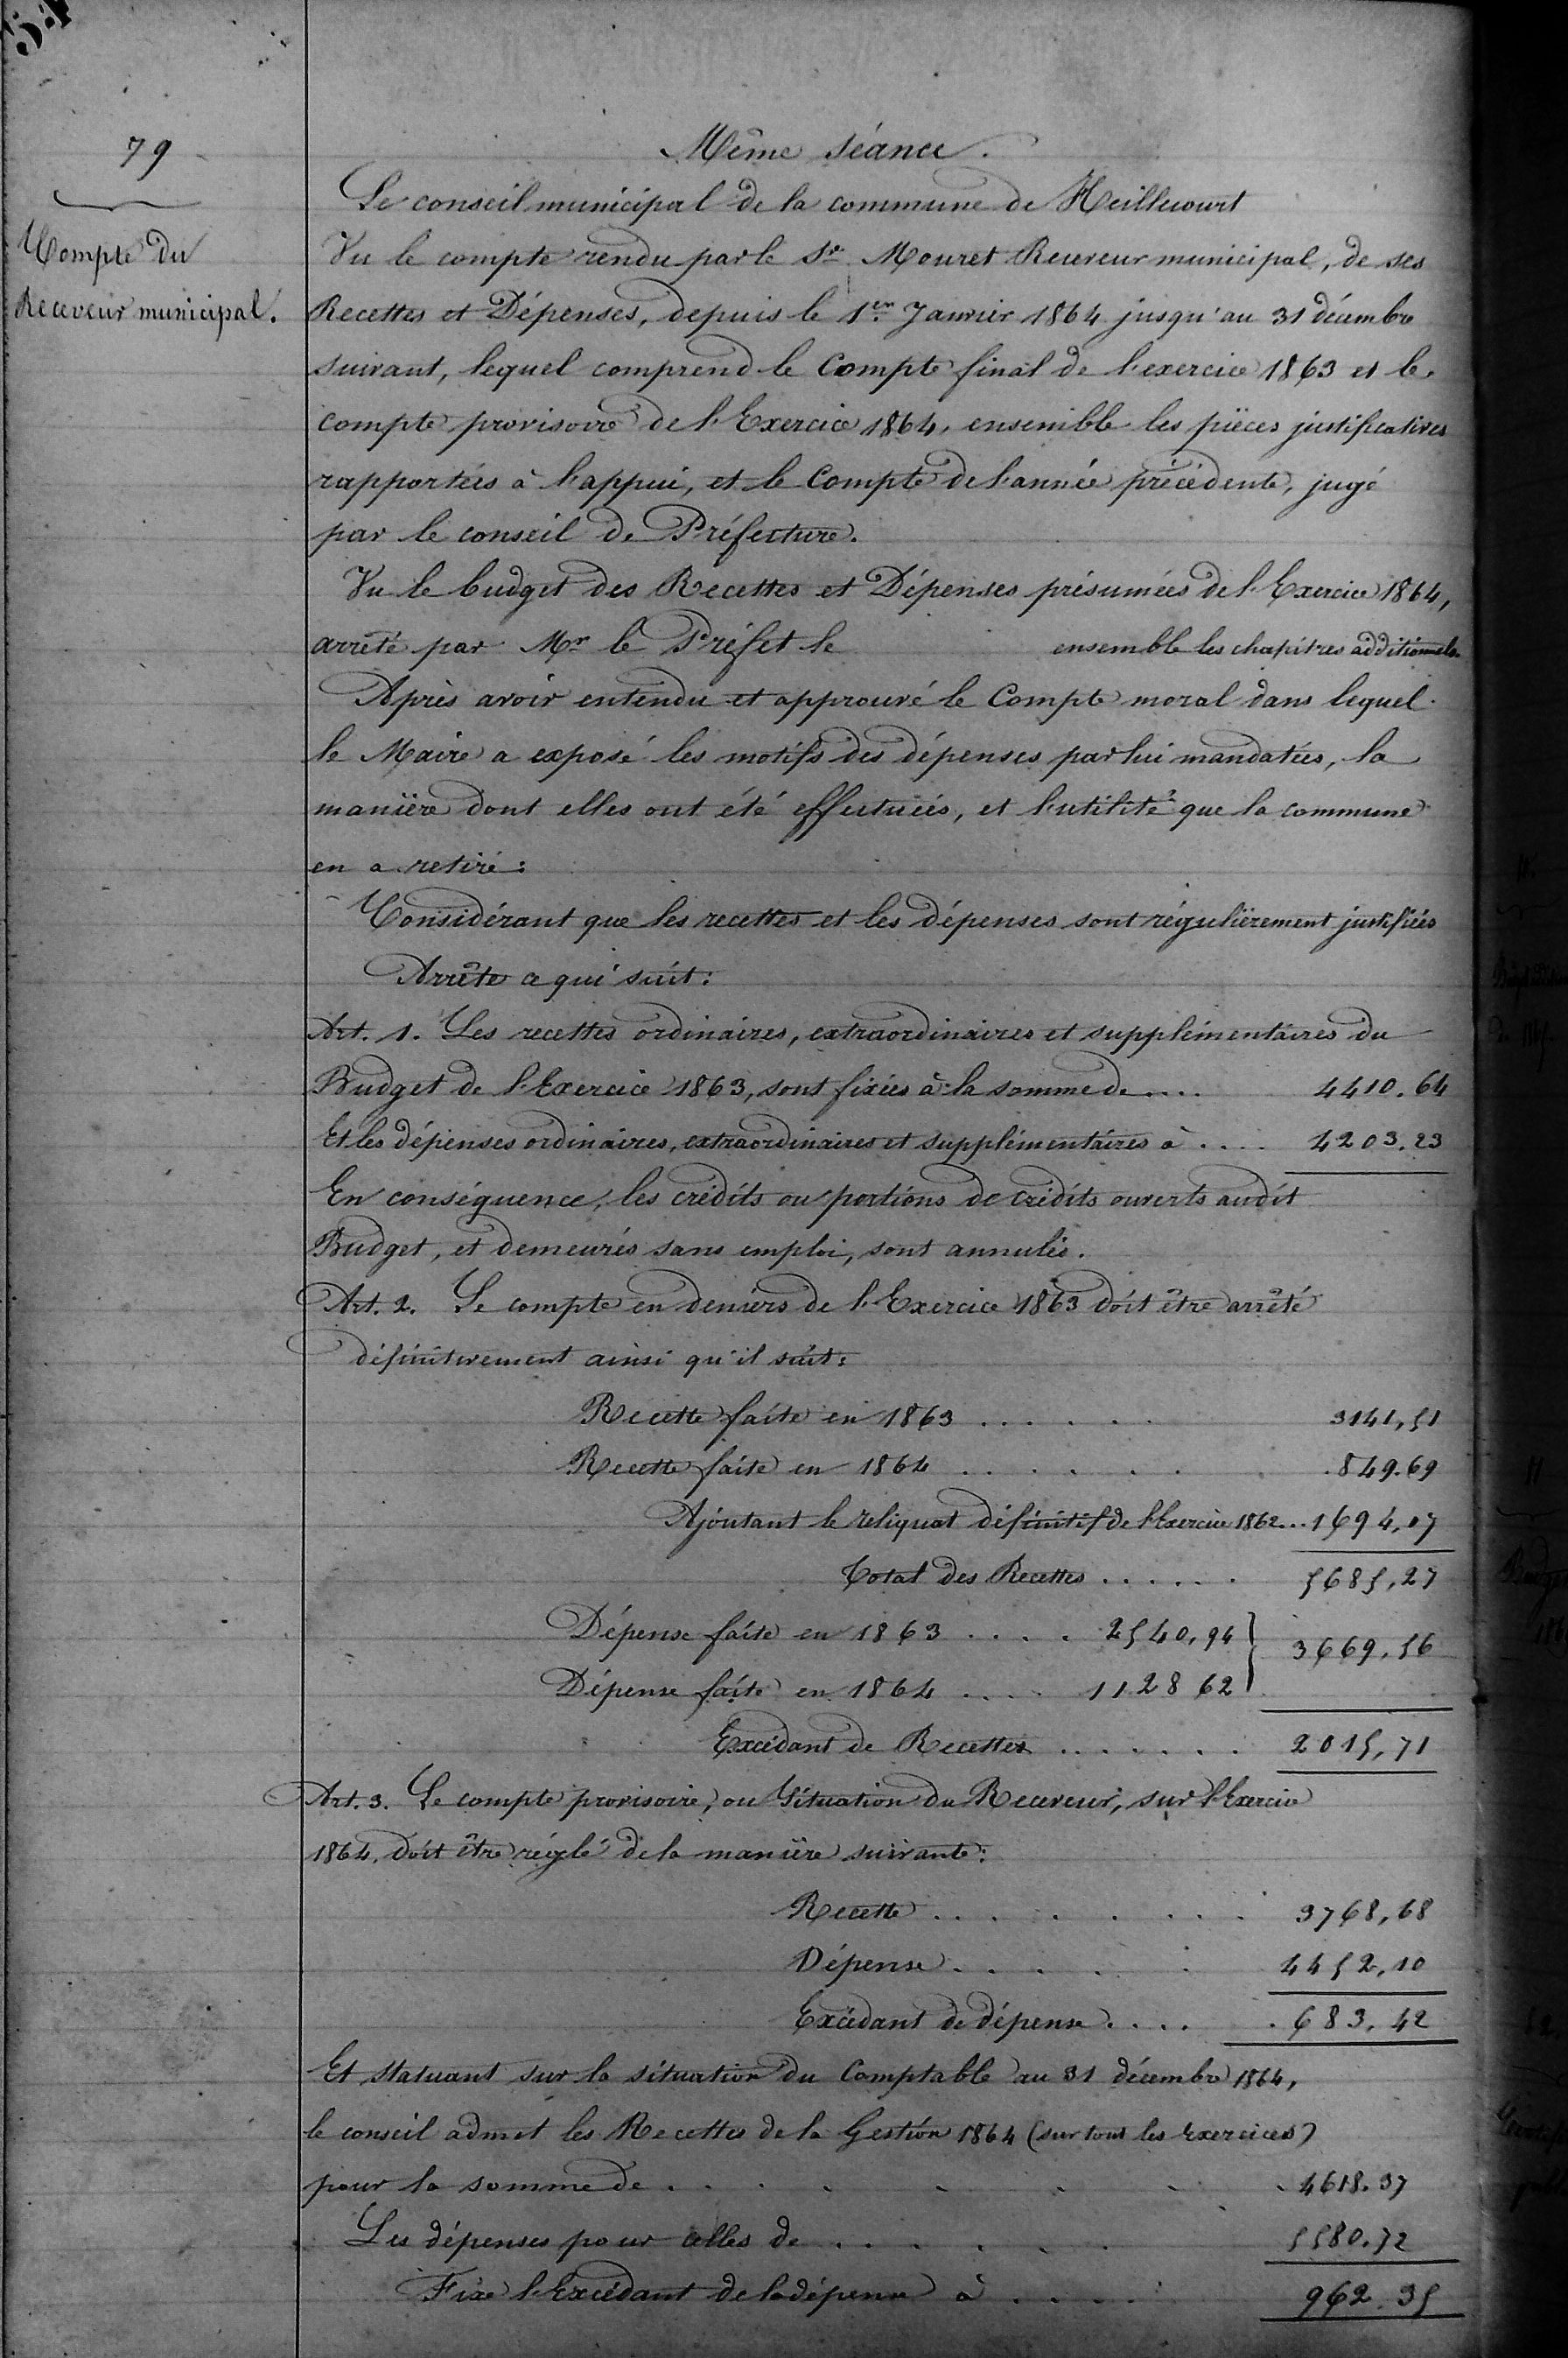 54
79
Compte du
Receveur municipal.
Même séance.
Le conseil municipal de la commune de Heillecourt
Vu le compte rendu par le Sr. Mouret Receveur municipal, de ses
Recettes et Dépenses, depuis le 1er. Janvier 1864 jusqu'au 31 décembre
suivant, lequel comprend le Compte final de l'exercice 1863 et le
compte provisoire de l'Exercice 1864, ensemble les pièces justificatives
rapportées à l'appui, et le Compte de l'année précédente, jugé
par le conseil de Préfecture.
Vu le budget des Recettes et Dépenses présumées de l'Exercice 1864,
arrêté par Mr le Préfet le ensemble les chapitres additionnels
Après avoir entendu et approuvé le Compte moral dans lequel
le Maire a exposé les motifs des dépenses par lui mandatées, la
manière dont elles ont été effectuées, et l'utilité que la commune
en a retiré:
Considérant que les recettes et les dépenses sont régulièrement justifiées
Arrête ce qui suit:
Art. 1. Les recettes ordinaires, extraordinaires et supplémentaires du
Budget de l'Exercice 1863, sont fixées à la somme de .... 4410.64
Et les dépenses ordinaires, extraordinaires et supplémentaires à .... 4203.23
En conséquence, les crédits ou portions de crédits ouverts audit
Budget, et demeurés sans emploi, sont annulés.
Art. 2. Le compte en deniers de l'Exercice 1863 doit être arrêté
définitivement ainsi qu'il suit:
Recette faite en 1863 ...... 3141,51
Recette faite en 1864 ...... 849.69
Ajoutant le reliquat définitif de l'Exercice 1862... 1694,07
Total des Recettes ...... 5685,27
Dépense faite en 1863 .... 2540,94 } 3669.56
Dépense faite en 1864 .... 1128 62
Excédant de Recettes ....... 2015,71
Art. 3. Le compte provisoire, ou Situation du Receveur, sur l'Exercice
1864, doit être réglé de la manière suivante:
Recette ....... 3768,68
Dépense ..... 4452,10
Excédant de dépense .... 683.42
Et statuant sur la situation du Comptable au 31 décembre 1864,
le conseil admet les Recettes de la Gestion 1864 (sur tous les Exercices)
pour la somme de ...... 4618.37
Les dépenses pour celles de ...... 5580.72
Fixe l'Excédant de la dépense à .... 962.35